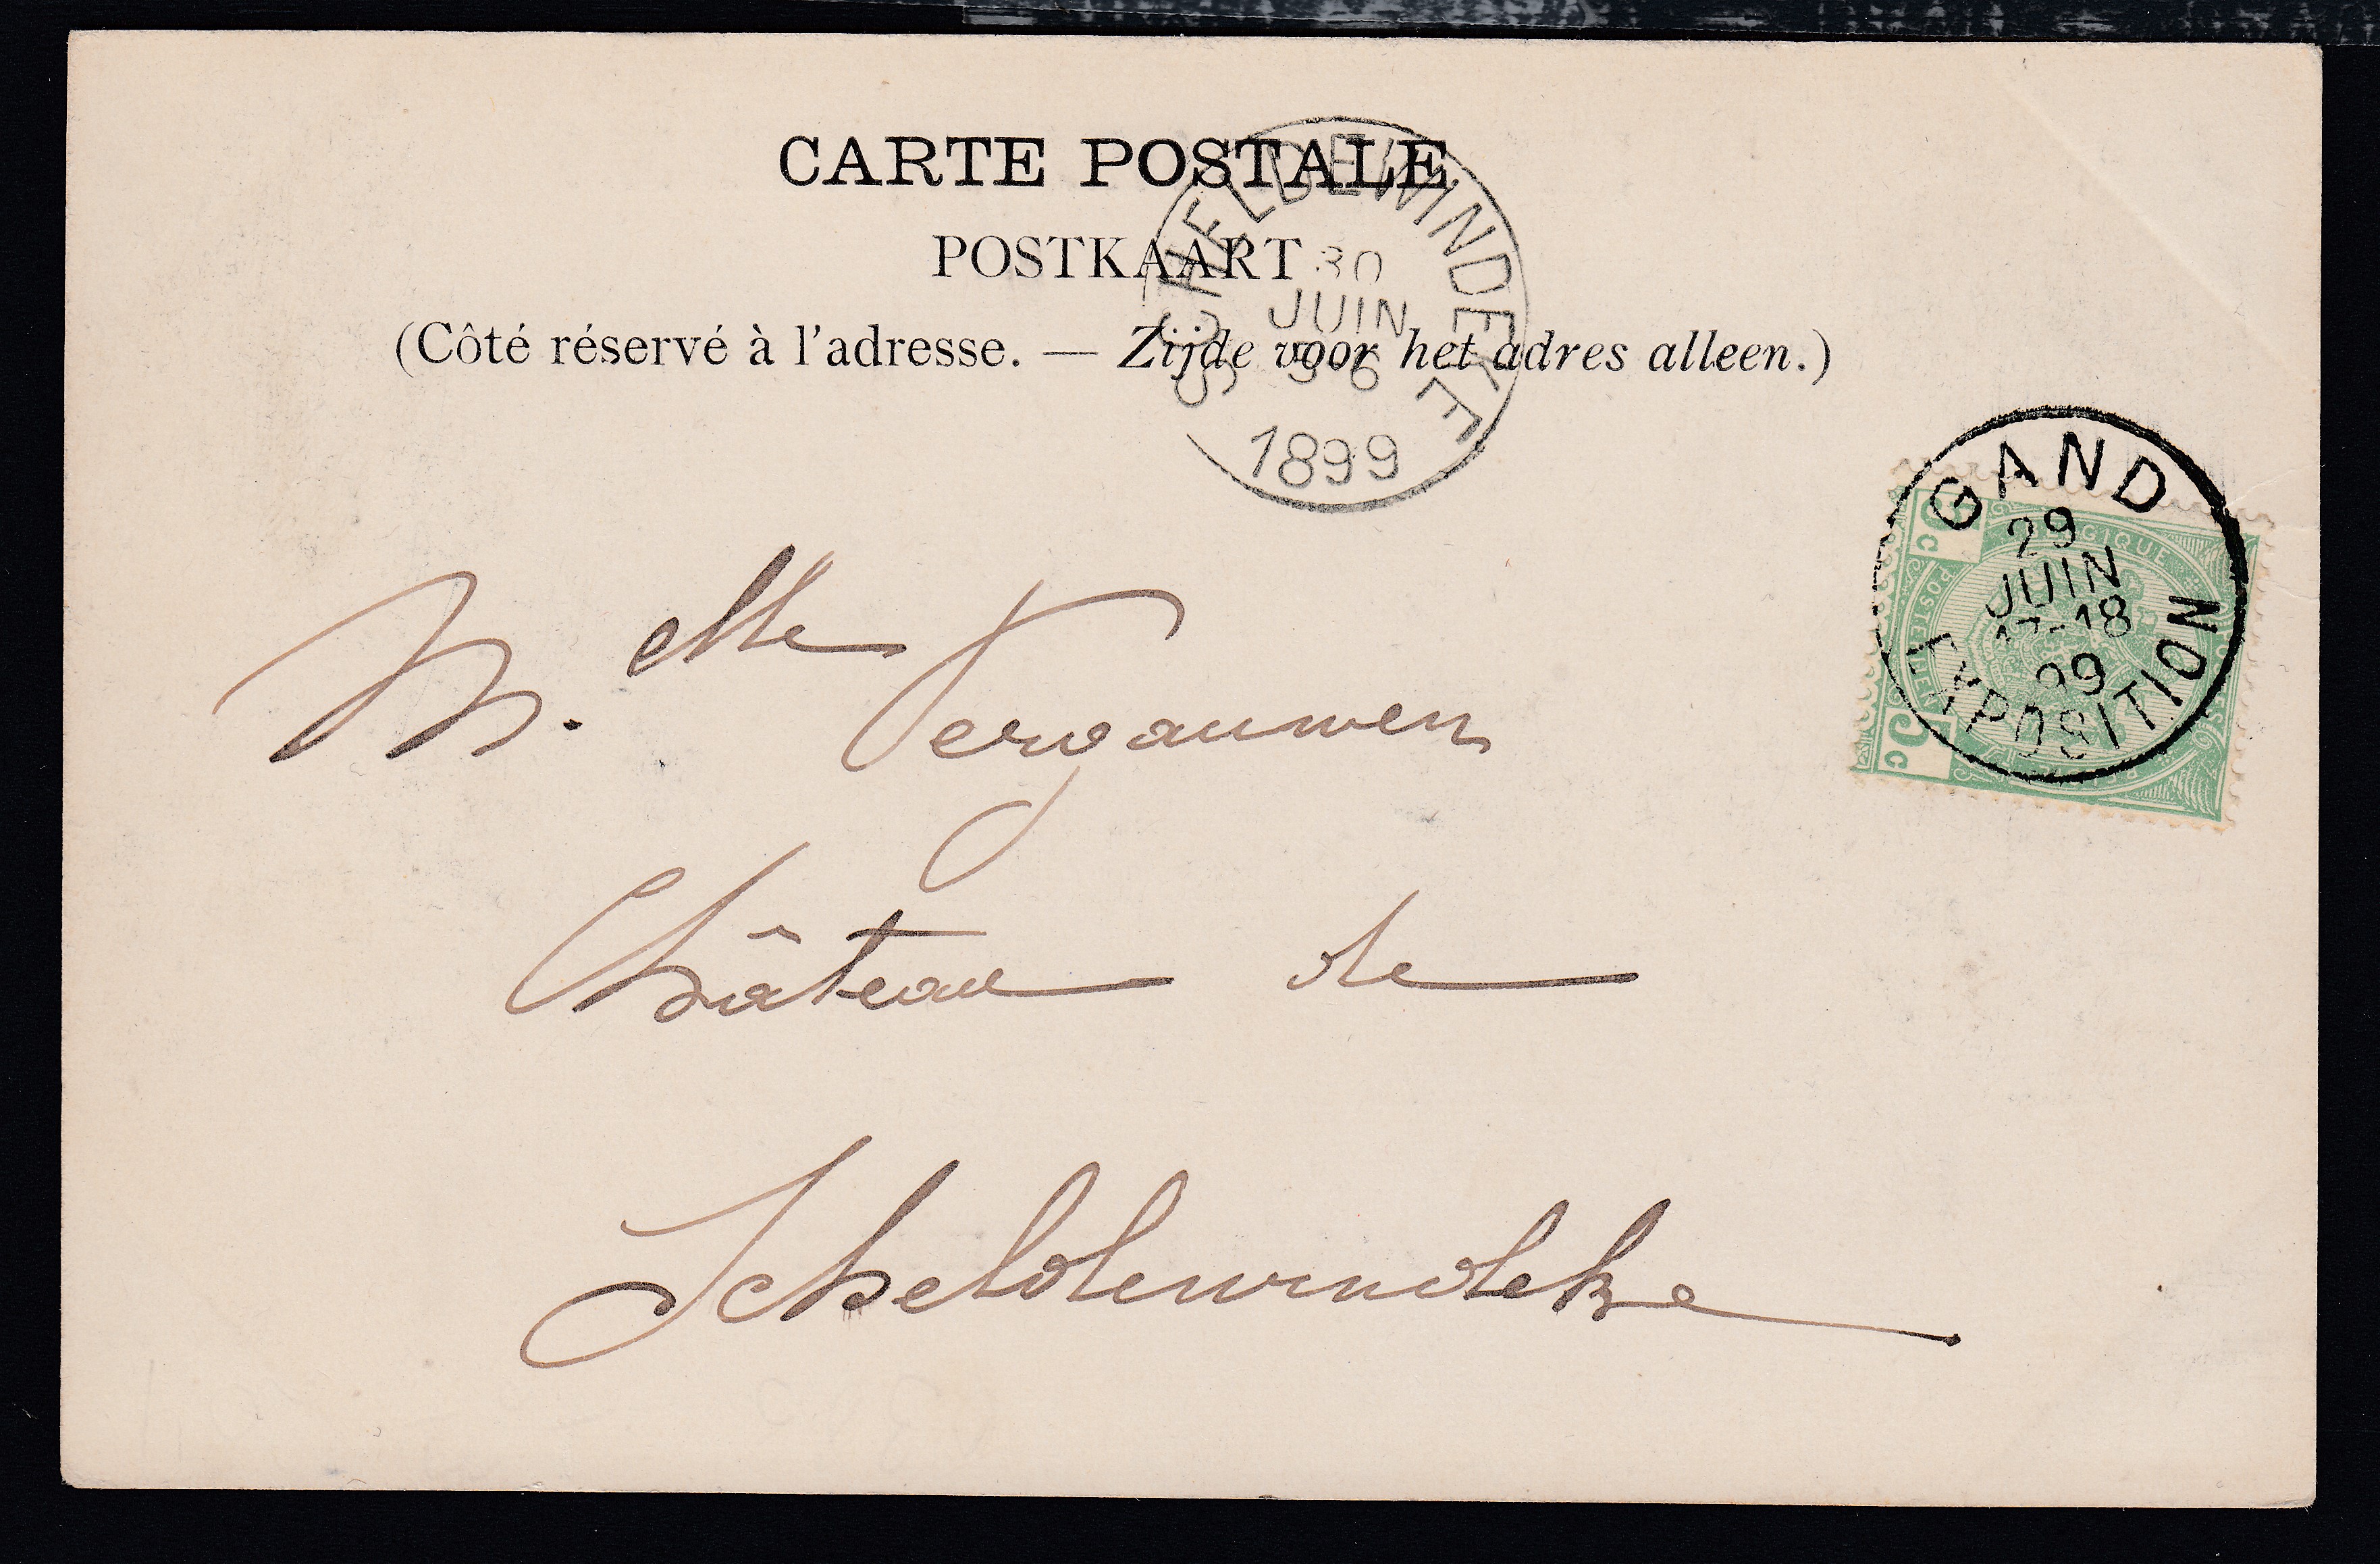 CARTE POSTALE
POSTKAART
(Côté réservé à l'adresse. — Zijde voor het adres alleen.)
SCHELDEWINDEKE
30
JUIN
5-6
1899
GAND
29
JUIN
17-18
99
EXPOSITION
5 c
5 c
M. elle Vergauwen
Château de
Scheldewindeke